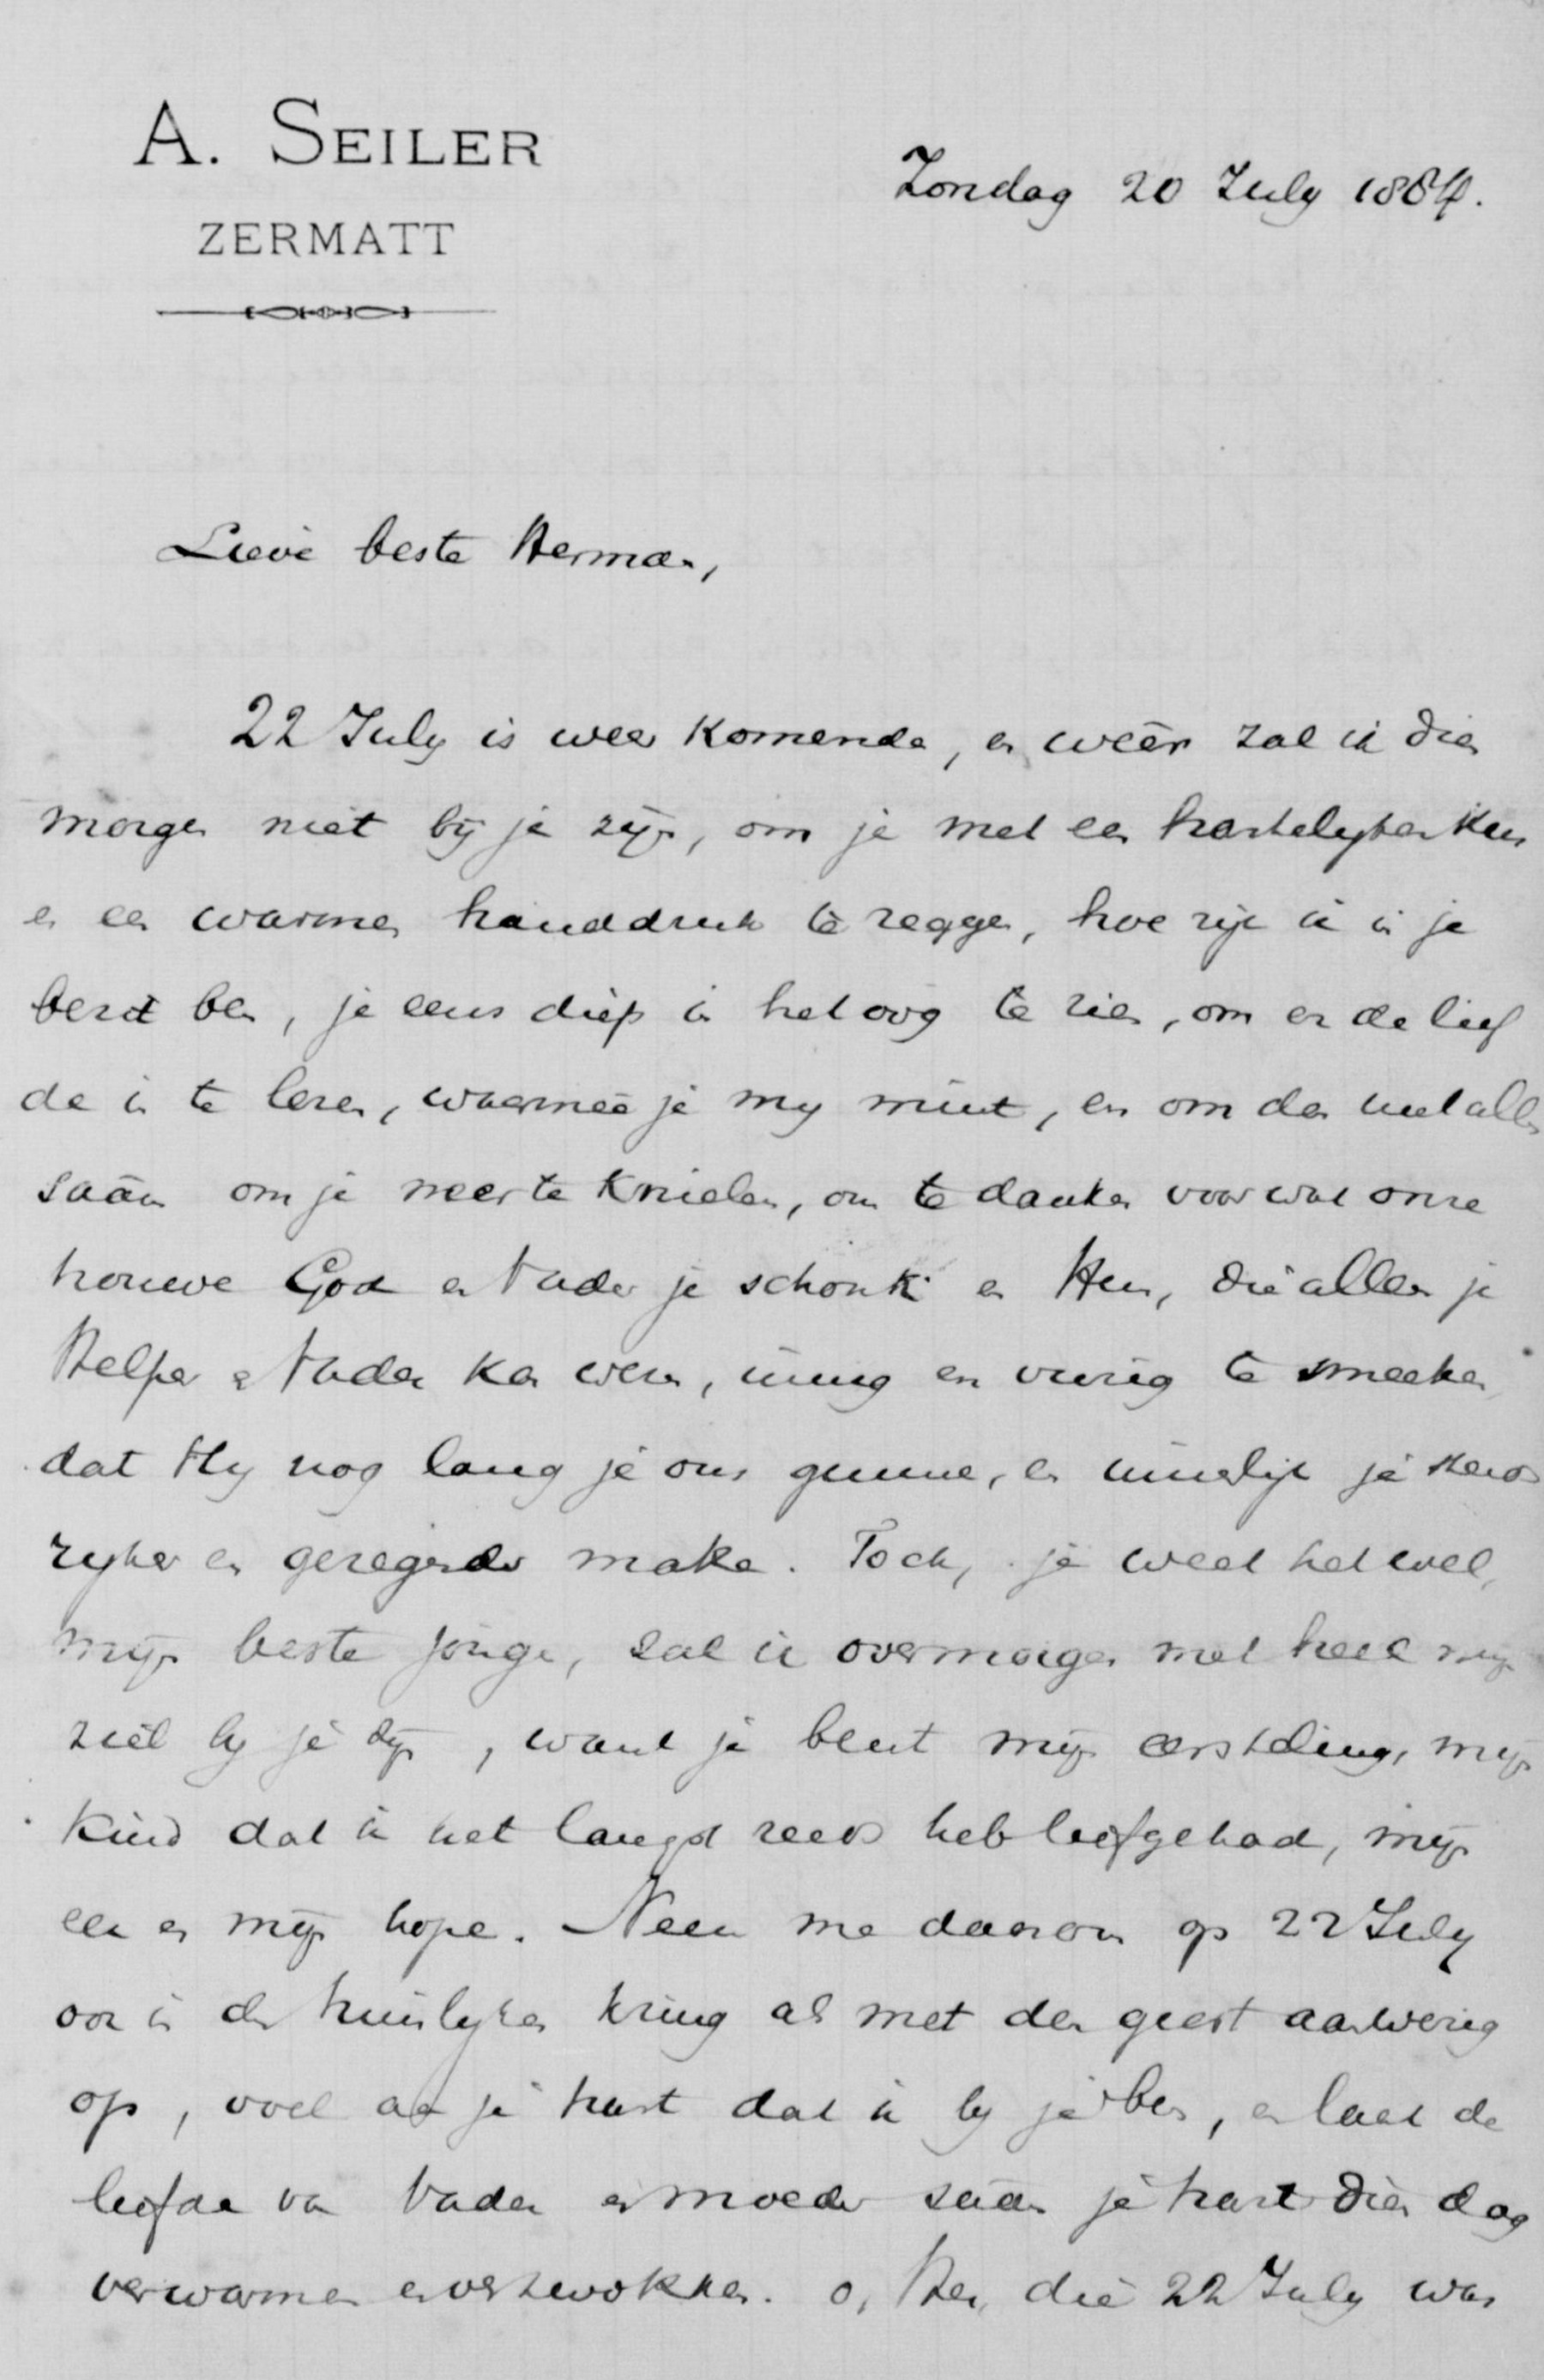 A. SEILER
ZERMATT
Zondag 20 July 1884.
Lieve beste Herman,
22 July is weer komende, en weêr zal ik dien
morgen niet bij je zijn, om je met een hartelyken kus
en een warmen handdruk te zeggen, hoe rijk ik in je
bezit ben, je eens diep in het oog te zien, om er de lief
de in te lezen, waarmeê je my mint, en om dan met allen
saâm om je neer te knielen, om te danken voor wat onze
trouwe God en Vader je schonk en Hem, die alleen je
Helper en Vader kan wezen, innig en vurig te smeeken
dat Hy nog lang je ons gunne, en innerlijk je steeds
ryker en gezegender make. Toch, je weet het wel,
mijn beste jongen, zal ik overmorgen met heel mijn
ziel by je zijn, want je bent mijn eersteling, mijn
kind dat ik het langst reeds heb liefgehad, mijn
eer en mijn hope. Neem me daarom op 22 July
ook in den huislyken kring als met den geest aanwezig
op, voel aan je hart dat ik by je ben, en laat de
liefde van Vader en moeder saâm je hart dien dag
verwarmen en verkwikken. O, Her, die 22 July was